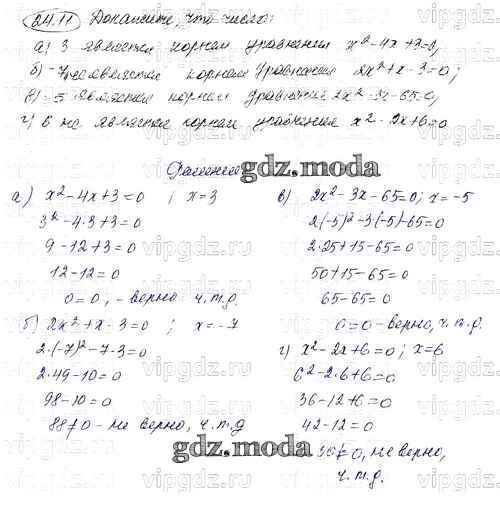 24.11 Докажите, что число:
а) 3 является корнем уравнения x²-4x+3=0,
б) -7 не является корнем уравнения 2x²+x-3=0;
в) -5 является корнем уравнения 2x²-3x-65=0,
г) 6 не является корнем уравнения x²-2x+6=0
Решение
gdz.moda
а) x²-4x+3=0 ; x=3
3²-4·3+3=0
9-12+3=0
12-12=0
0=0, - верно ч.т.д.
б) 2x²+x-3=0 ; x=-7
2·(-7)²-7-3=0
2·49-10=0
98-10=0
88≠0 - не верно, ч.т.д
в) 2x²-3x-65=0; x=-5
2(-5)²-3(-5)-65=0
2·25+15-65=0
50+15-65=0
65-65=0
0=0-верно, ч.т.д.
г) x²-2x+6=0; x=6
6²-2·6+6=0
36-12+6=0
42-12=0
30≠0, не верно,
ч.т.д.
gdz.moda
vipgdz.ru